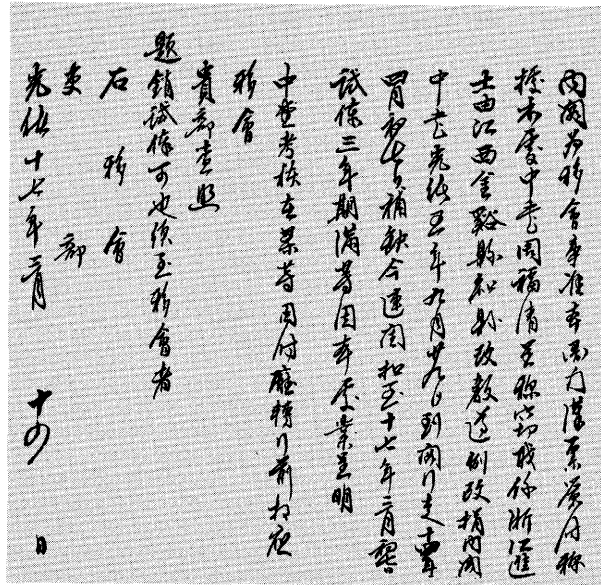 內閣為移會事准本衙門漢票簽付稱
據本處中書周福清呈稱竊職係浙江進
士由江西金谿縣知縣改教遵例改捐內閣
中書光緒五年九月廿九日到閣行走十四年
初七日補缺今連閏扣至十七年二月
試俸三年期滿等因本處業呈明
中堂考核在案等因付廳轉行前相應
移會
貴部查照
題銷試俸可也須至移會者
右移會
吏部
光緒十七年二月十四日